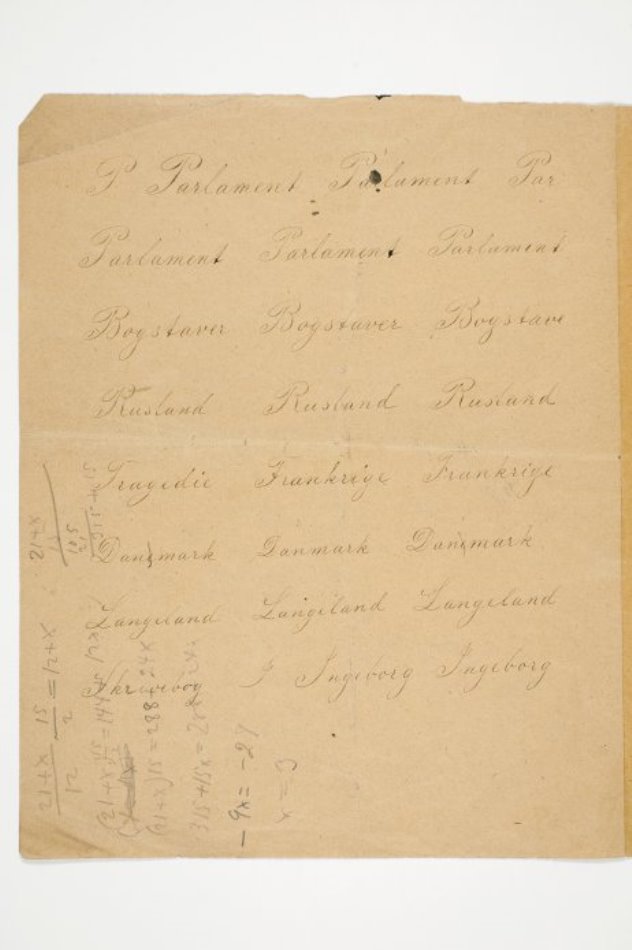 P Parlament Parlament Par
Parlament Parlament Parlament
Bogstaver Bogstaver Bogstave
Rusland Rusland Rusland
Tragedie Frankrige Frankrige
Danmark Danmark Danmark
Langeland Langeland Langeland
Skrivebog I Ingeborg Ingeborg
21+x
315+15x=288+24x
-9x = -27
x = 3